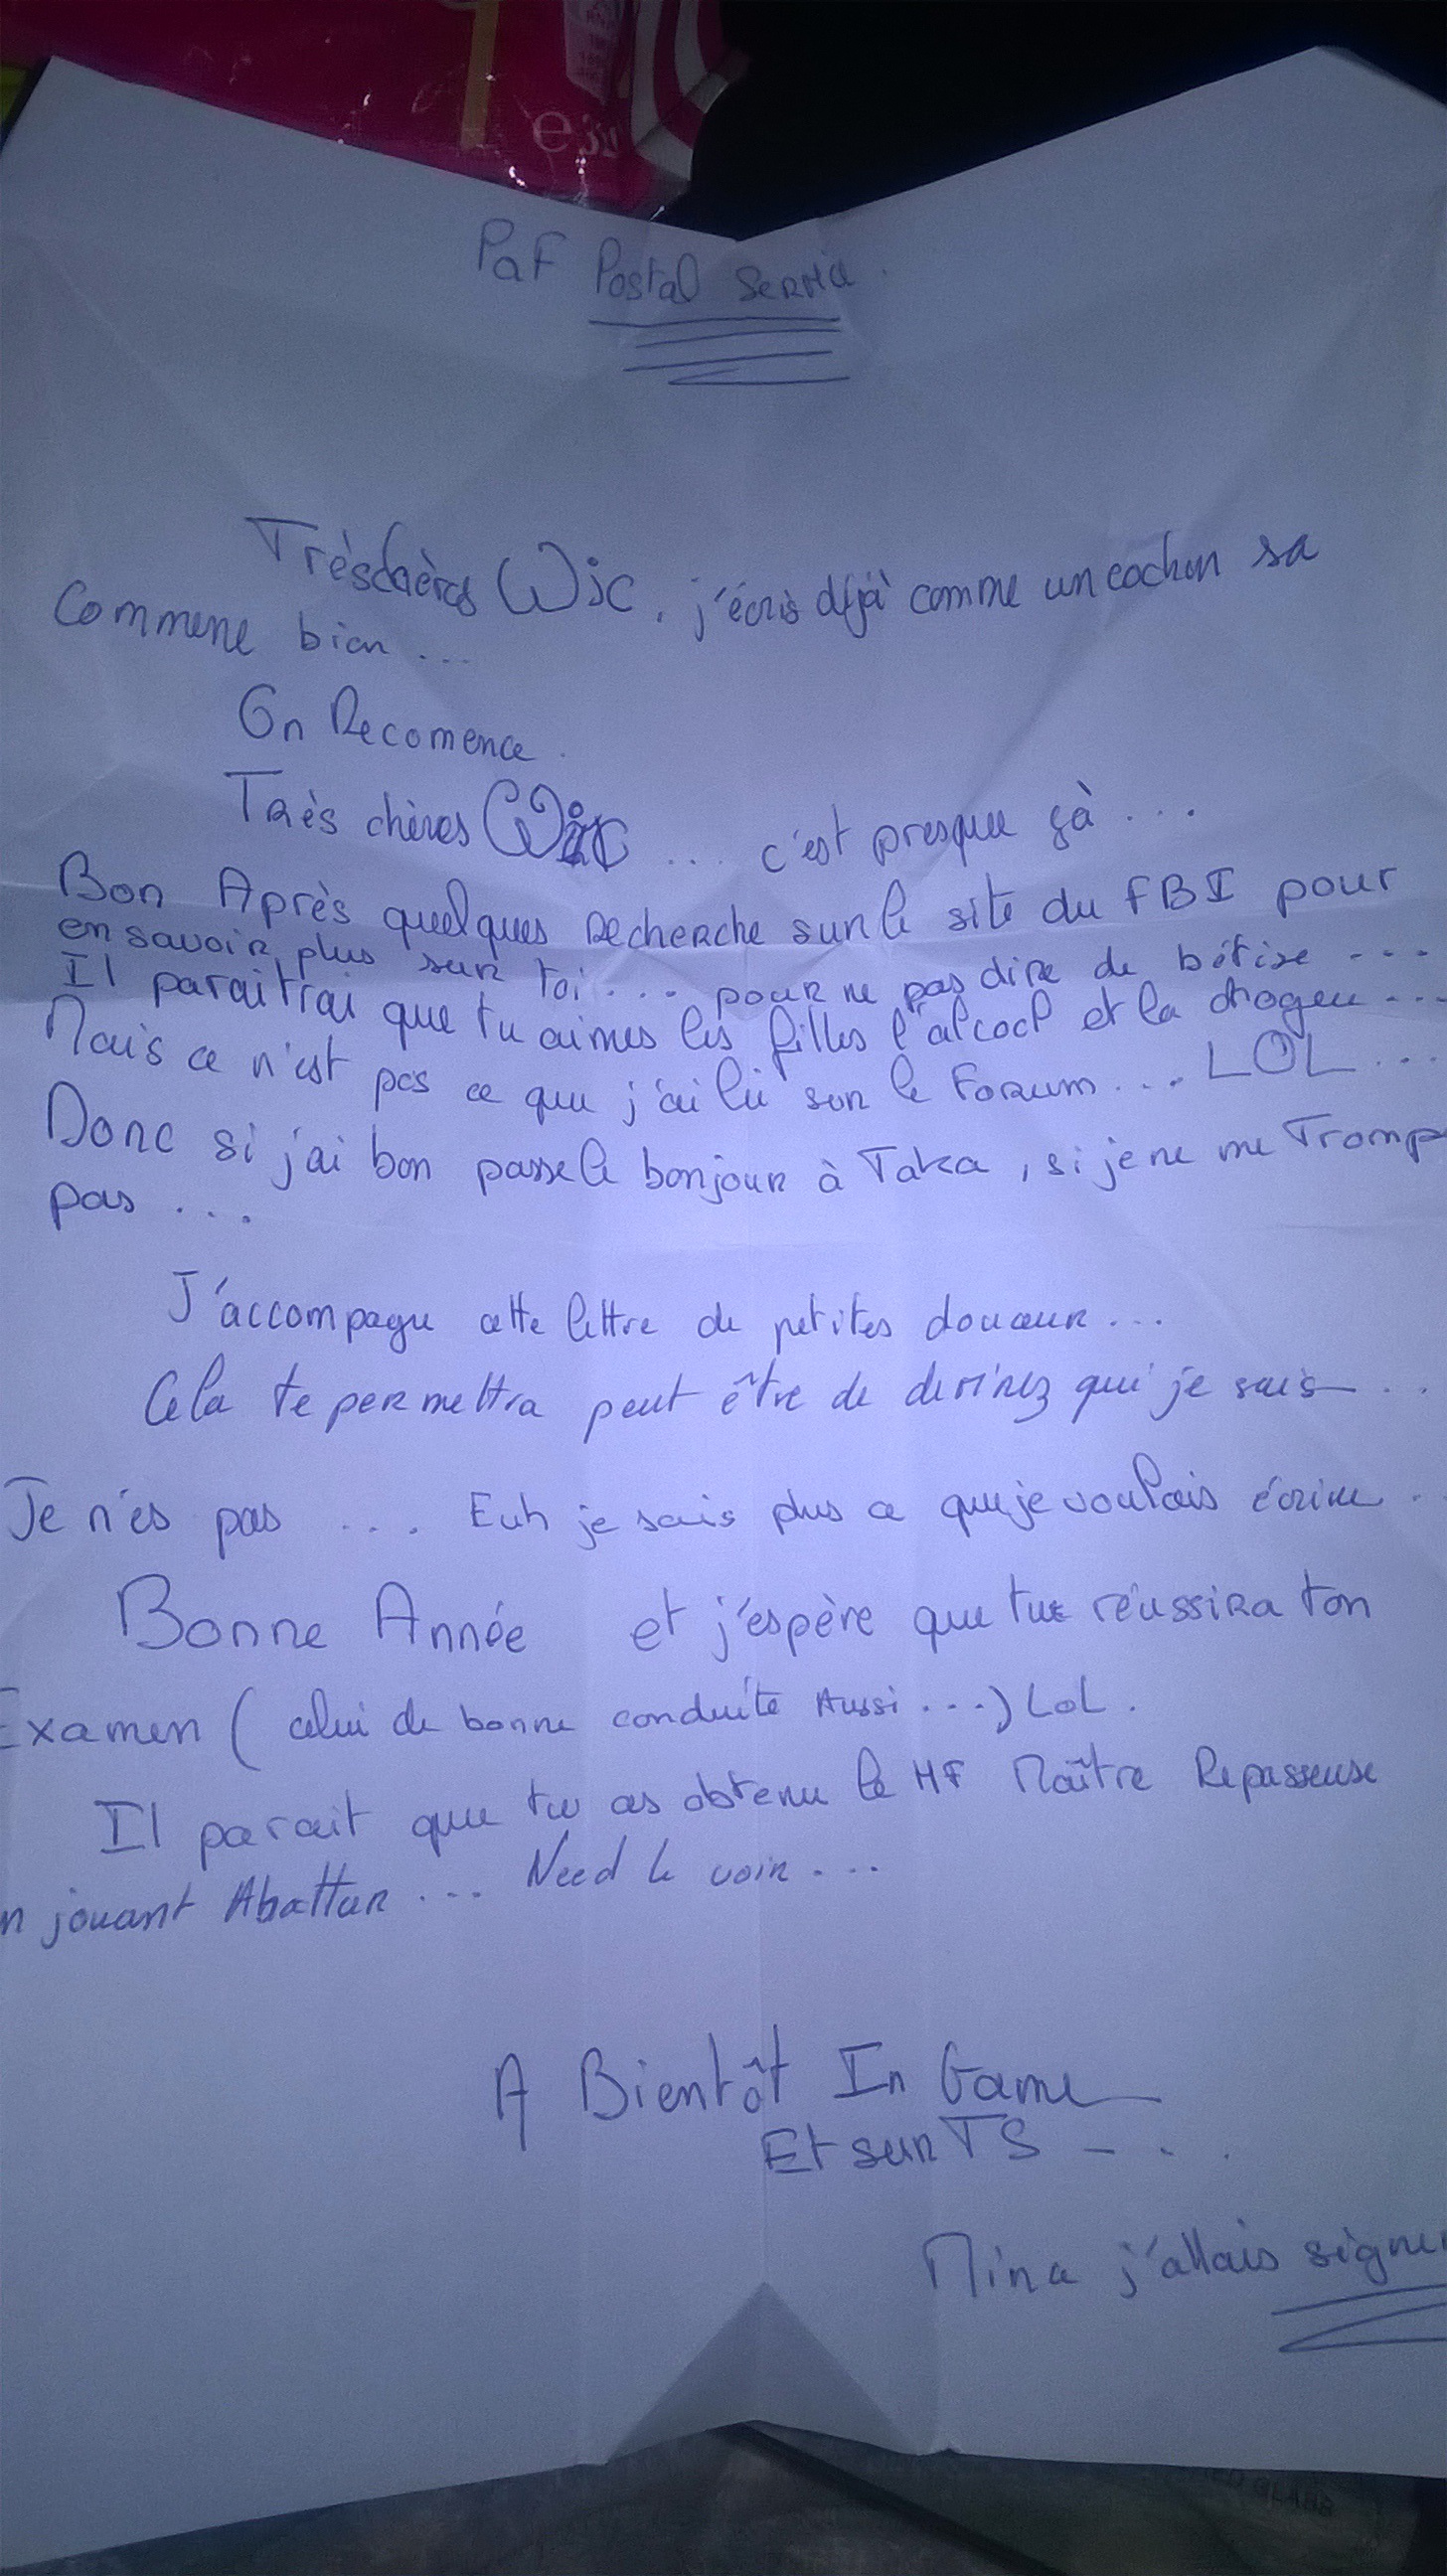 PaF Postal Service.
Très chères Wic, j'écris déjà comme un cochon sa
Commene bien ...
On Recomence.
Très chères Wic ... c'est presque çà ...
Bon Après quelques recherche sur le site du FBI pour
en savoir plus sur toi ... pour ne pas dire de bétise ...
Il paraitrai que tu aimes les filles l'alcool et la drogue ...
Mais ce n'est pas ce que j'ai lu sur le Forum ... LOL ...
Donc si j'ai bon passe le bonjour à Taka, si je ne me Tromp
pas ...
J'accompagne cette lettre de petites douceur ...
Cela te permettra peut être de devinez qui je suis ...
Je n'es pas ... Euh je sais plus ce que je voulais écrire ...
Bonne Année et j'espère que tu réussira ton
Examen (celui de bonne conduite Aussi ...) LoL.
Il parait que tu as obtenu le HF Maître Repasseuse
n jouant Abattar ... Need le voir ...
A Bientôt In Game
Et sur TS - . .
Mina j'allais signer